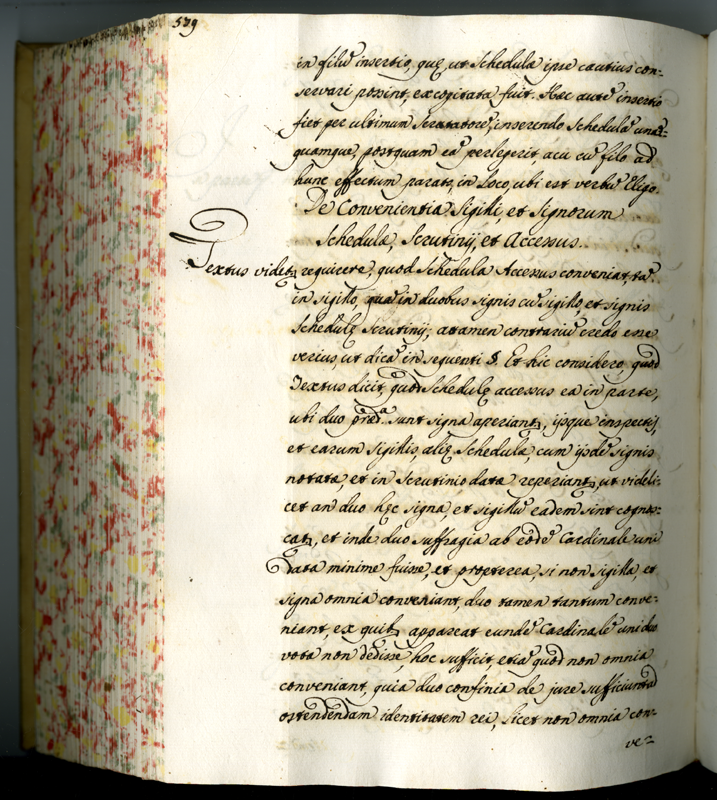 539
in filũ insertio, quę, ut Schedulæ ipse cautius con=
servari possint, excogitata fuit. Hæc autẽ insertio
fiet per ultimum Scrutatorẽ, inserendo Schedulã unã=
quamque, postquam eã perlegerit acu cũ filo ad
hunc effectum parato, in loco, ubi est verbũ Eligo.
De Convenientia Sigilli, et Signorum
Schedulæ, Scrutinij, et Accessus.
Textus videtr requirere, quod Schedula Accessus conveniat, tã
in sigillo, quã in duobus signis cũ sigillo, et signis
Schedulę Scrutinij; attamen contrariũ credo esse
verius, ut dicã in sequenti §. Et hic considero, quod
Textus dicit, quod Schedulę accessus ea in parte,
ubi duo præda. sunt signa aperiantr, ijsque inspectis,
et earum Sigillis, alię Schedulæ, cum ijsdẽ signis
notatæ, et in Scrutinio datæ reperiantr, ut videli=
cet an duo hęc signa, et sigillũ eadem sint cognos=
catr, et inde duo suffragia ab eodẽ Cardinale uni
data minime fuisse, et propterea, si non sigilla, et
signa omnia conveniant, duo tamen tantum conve=
niant, ex quibs appareat eundẽ Cardinalẽ uni duo
vota non dedisse, hoc sufficit, etiã quod non omnia
conveniant, quia duo confinia de jure sufficiunt ad
ostendendam identitatem rei, licet non omnia con=
ve=